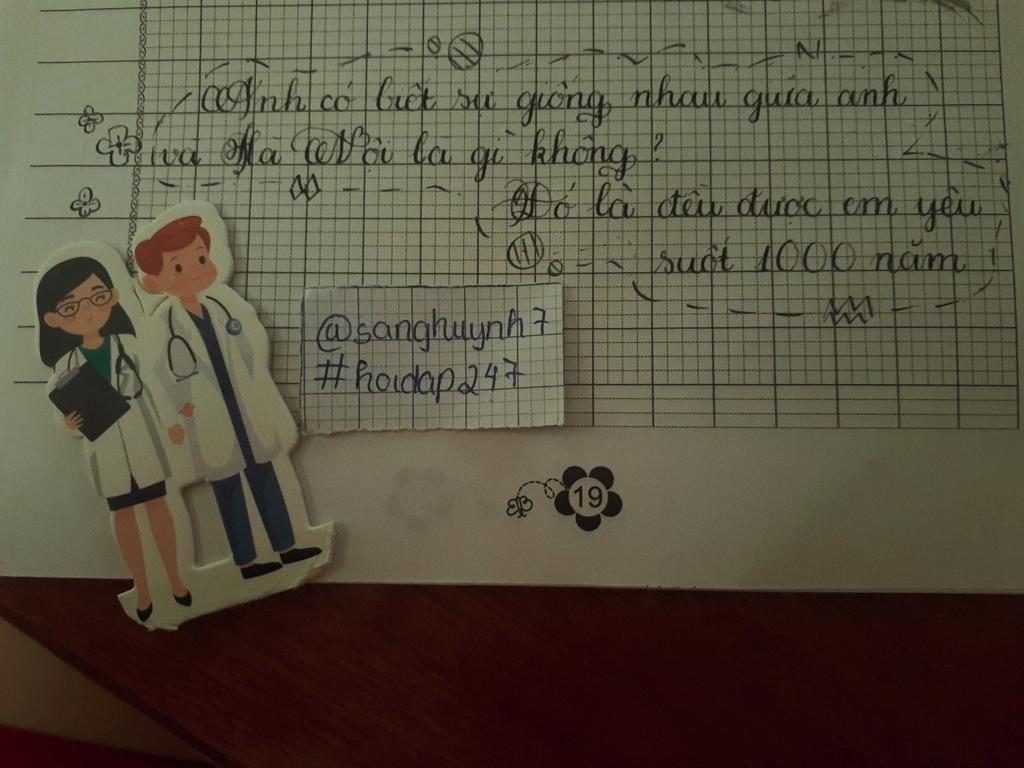 Anh có biết sự giống nhau giữa anh
và Hà Nội là gì không?
Đó là đều được em yêu
suốt 1000 năm!
@sanghuynh7
#hoidap247
19